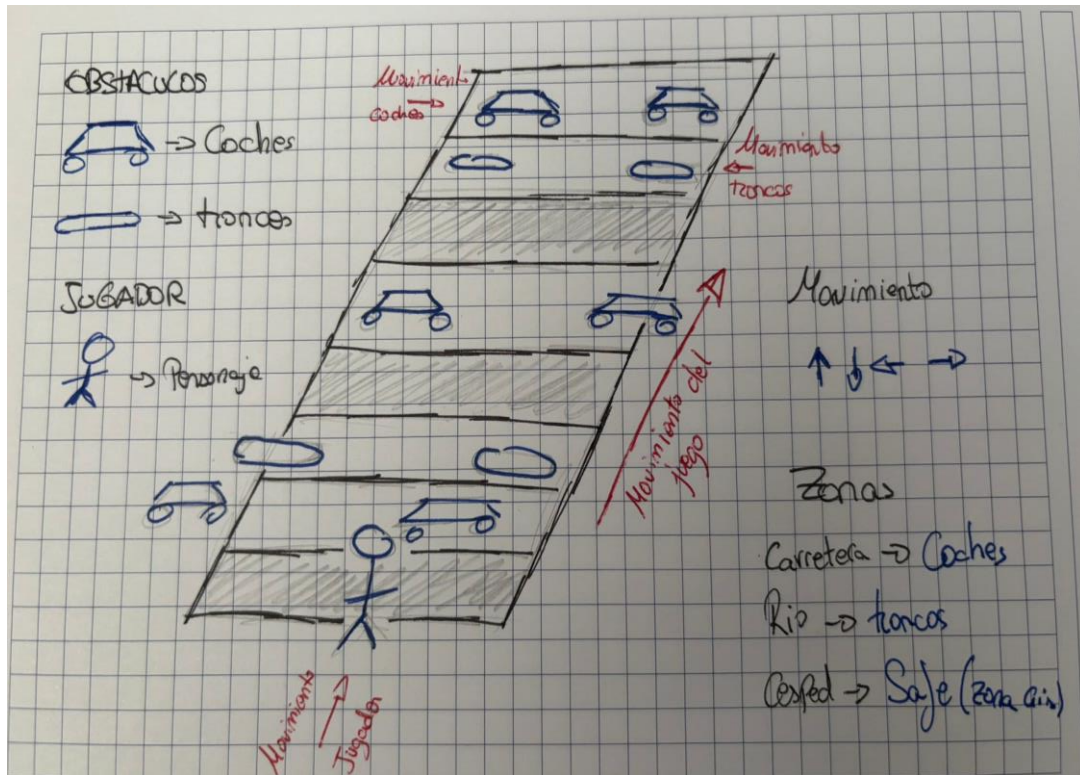 OBSTACUCOS
→ Coches
→ troncos
JUGADOR
→ Personaje
Movimiento
coches →
Movimiento
←
troncos
Movimiento del
juego
Movimiento
Jugador
Movimiento
↑ ↓ ← →
Zonas
Carretera → Coches
Rio → troncos
Cesped → Safe (zona Gis)